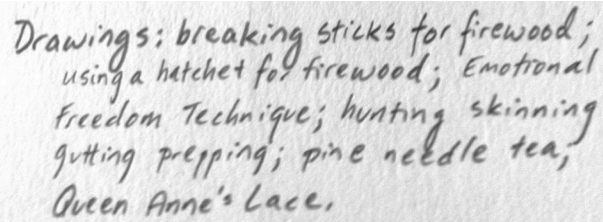 Drawings: breaking sticks for firewood;
using a hatchet for firewood; Emotional
Freedom Technique; hunting skinning
gutting prepping; pine needle tea;
Queen Anne's Lace.